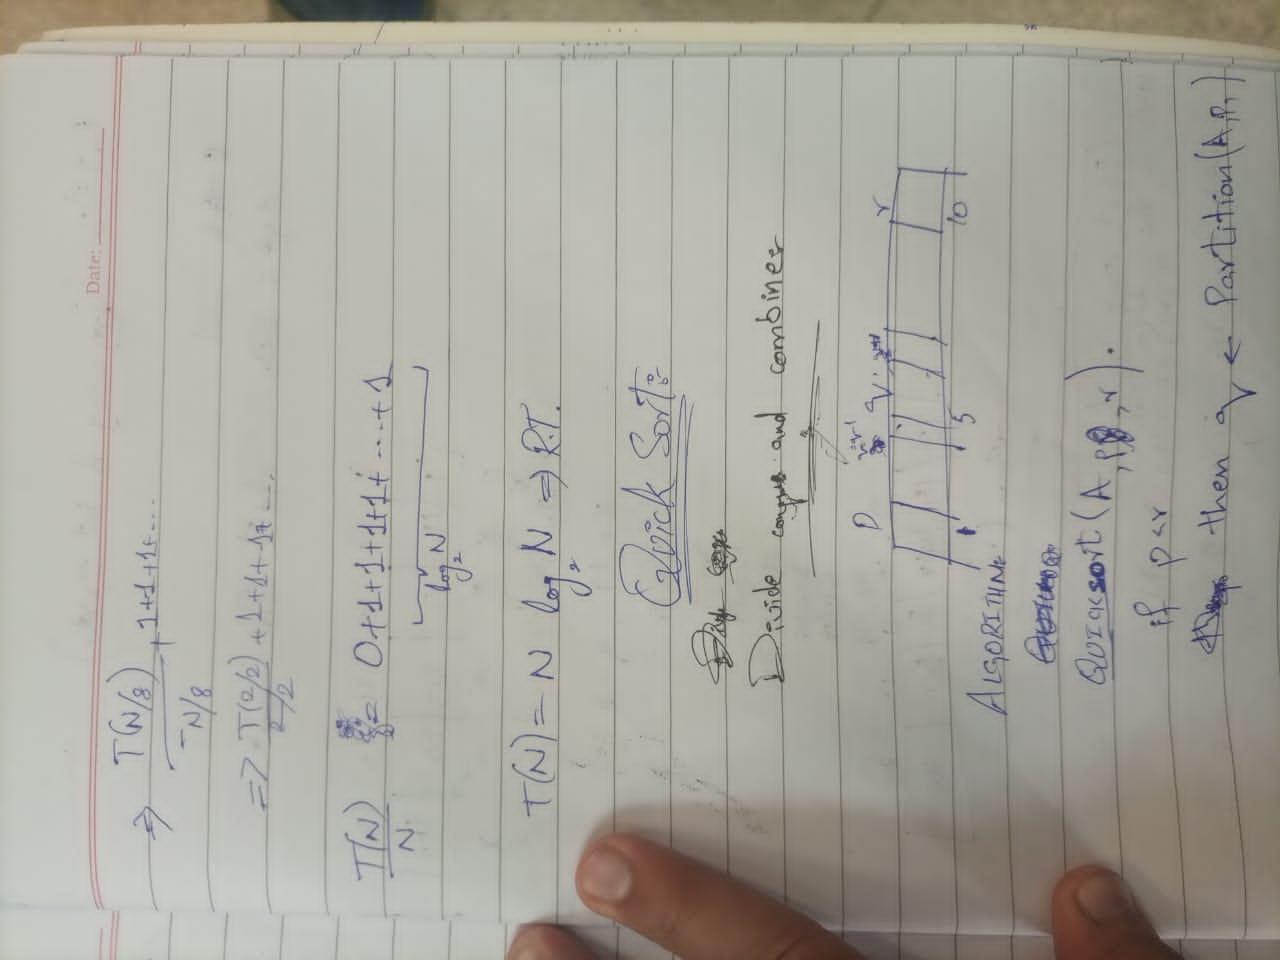 Date:
⇒ T(N/8)/N/8 + 1+1+1+....
=> T(2/2)/2/2 +1+1+1+....
T(N)/N = 0+1+1+1+1+....+1
log₂ N
T(N) = N log₂ N => R.T.
Quick Sort:
Divide conquer and combiner
p q r
1 5 10
ALGORITHM:
QUICKSORT (A, p, r).
if p < r
then q ← Partition(A, P, r)